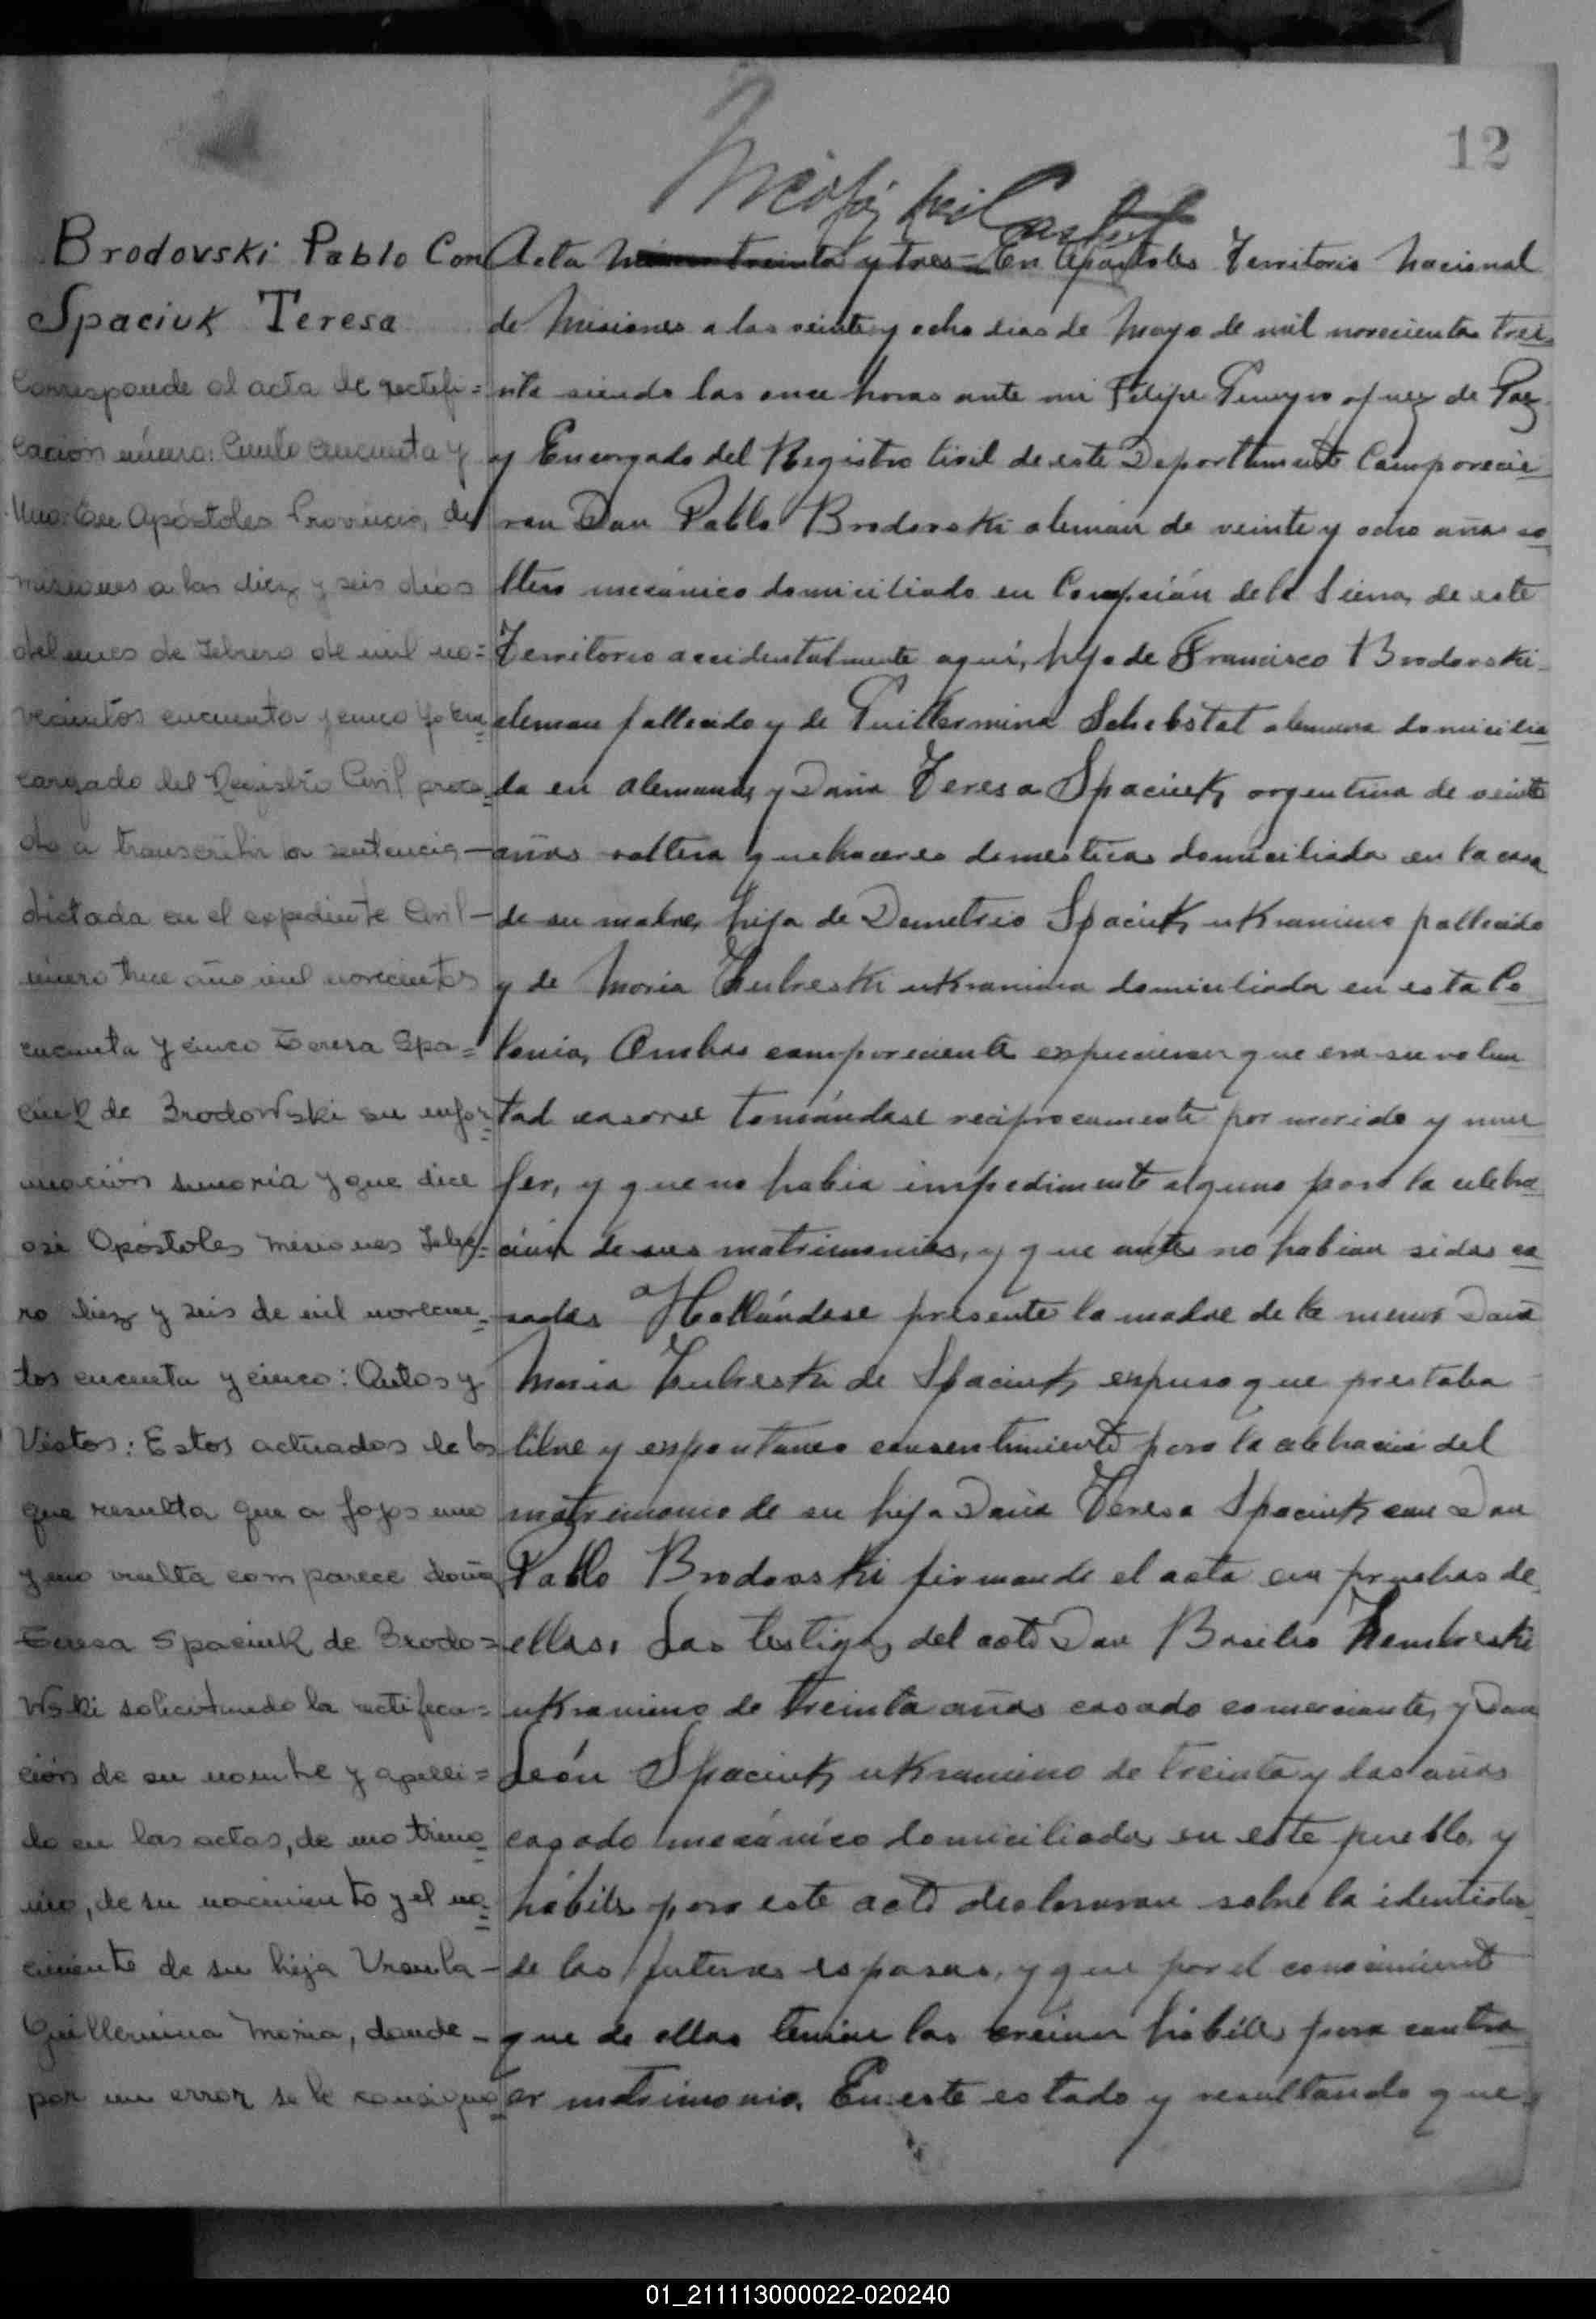 12
Brodovski Pablo Con
Spaciuk Teresa
Corresponde al acta de rectifi=
cación número: Ciento cincuenta y
Uno: En Apóstoles Provincia de
Misiones a los diez y seis días
del mes de Febrero de mil no=
vecientos cincuenta y cinco yo En
cargado del Registro Civil proce=
do a transcribir la sentencia—
dictada en el expediente Civil—
número trece año mil novecientos
cincuenta y cinco Teresa Spa=
ciuk de Brodowski su infor=
mación sumaria y que dice
asi Apóstoles Misiones Febre=
ro diez y seis de mil novecien=
tos cincuenta y cinco: Autos y
Vistos: Estos actuados de los
que resulta que a fojas una
y uno vuelta comparece doña
Teresa Spaciuk de Brodo=
wski solicitando la rectifica=
ción de su nombre y apelli=
do en las actas, de matrimo=
nio, de su nacimiento y el na=
cimiento de su hija Ursula—
Guillermina Maria, donde—
por un error se le consigna
Acta treinta y tres = En Apostoles Territorio Nacional
de Misiones a los veinte y ocho dias de Mayo de mil novecientos trei
nta siendo las once horas ante mi Felipe Juez de Paz
y Encargado del Registro Civil de este Departamento Comparecie
ron Don Pablo Brodovski aleman de veinte y ocho años so
ltero mecánico domiciliado en Concepción de la Sierra de este
Territorio accidentalmente aqui, hijo de Francisco Brodovski
aleman fallecido y de Guillermina Schebstat alemana domicilia
da en Alemania y Doña Teresa Spaciuk argentina de veinte
años soltera quehaceres domesticos domiciliada en la casa
de su madre, hija de Demetrio Spaciuk ukranino fallecido
y de Maria ukranina domiciliada en esta Co
lonia, Ambos comparecientes expusieron que era su volun
tad casarse tomándose reciprocamente por marido y mu
jer, y que no habia impedimento alguno para la celebra
ción de sus matrimonios, y que antes no habian sidos ca
sados Hallándose presente la madre de la menor Doña
Maria de Spaciuk expuso que prestaba
libre y espontaneo consentimiento para la celebracion del
matrimonio de su hija Doña Teresa Spaciuk con Don
Pablo Brodovski firmando el acta en pruebas de
ellos. Los testigos del acto Don Basilio
ukranino de treinta años casado comerciante, y Don
León Spaciuk ukranino de treinta y dos años
casado mecánico domiciliados en este pueblo y
hábiles para este acto declararon sobre la identidad
de los futuros esposos, y que por el conocimiento
que de ellos tenian los creian hábiles para contra
er matrimonio. En este estado y resultando que
01_211113000022-020240